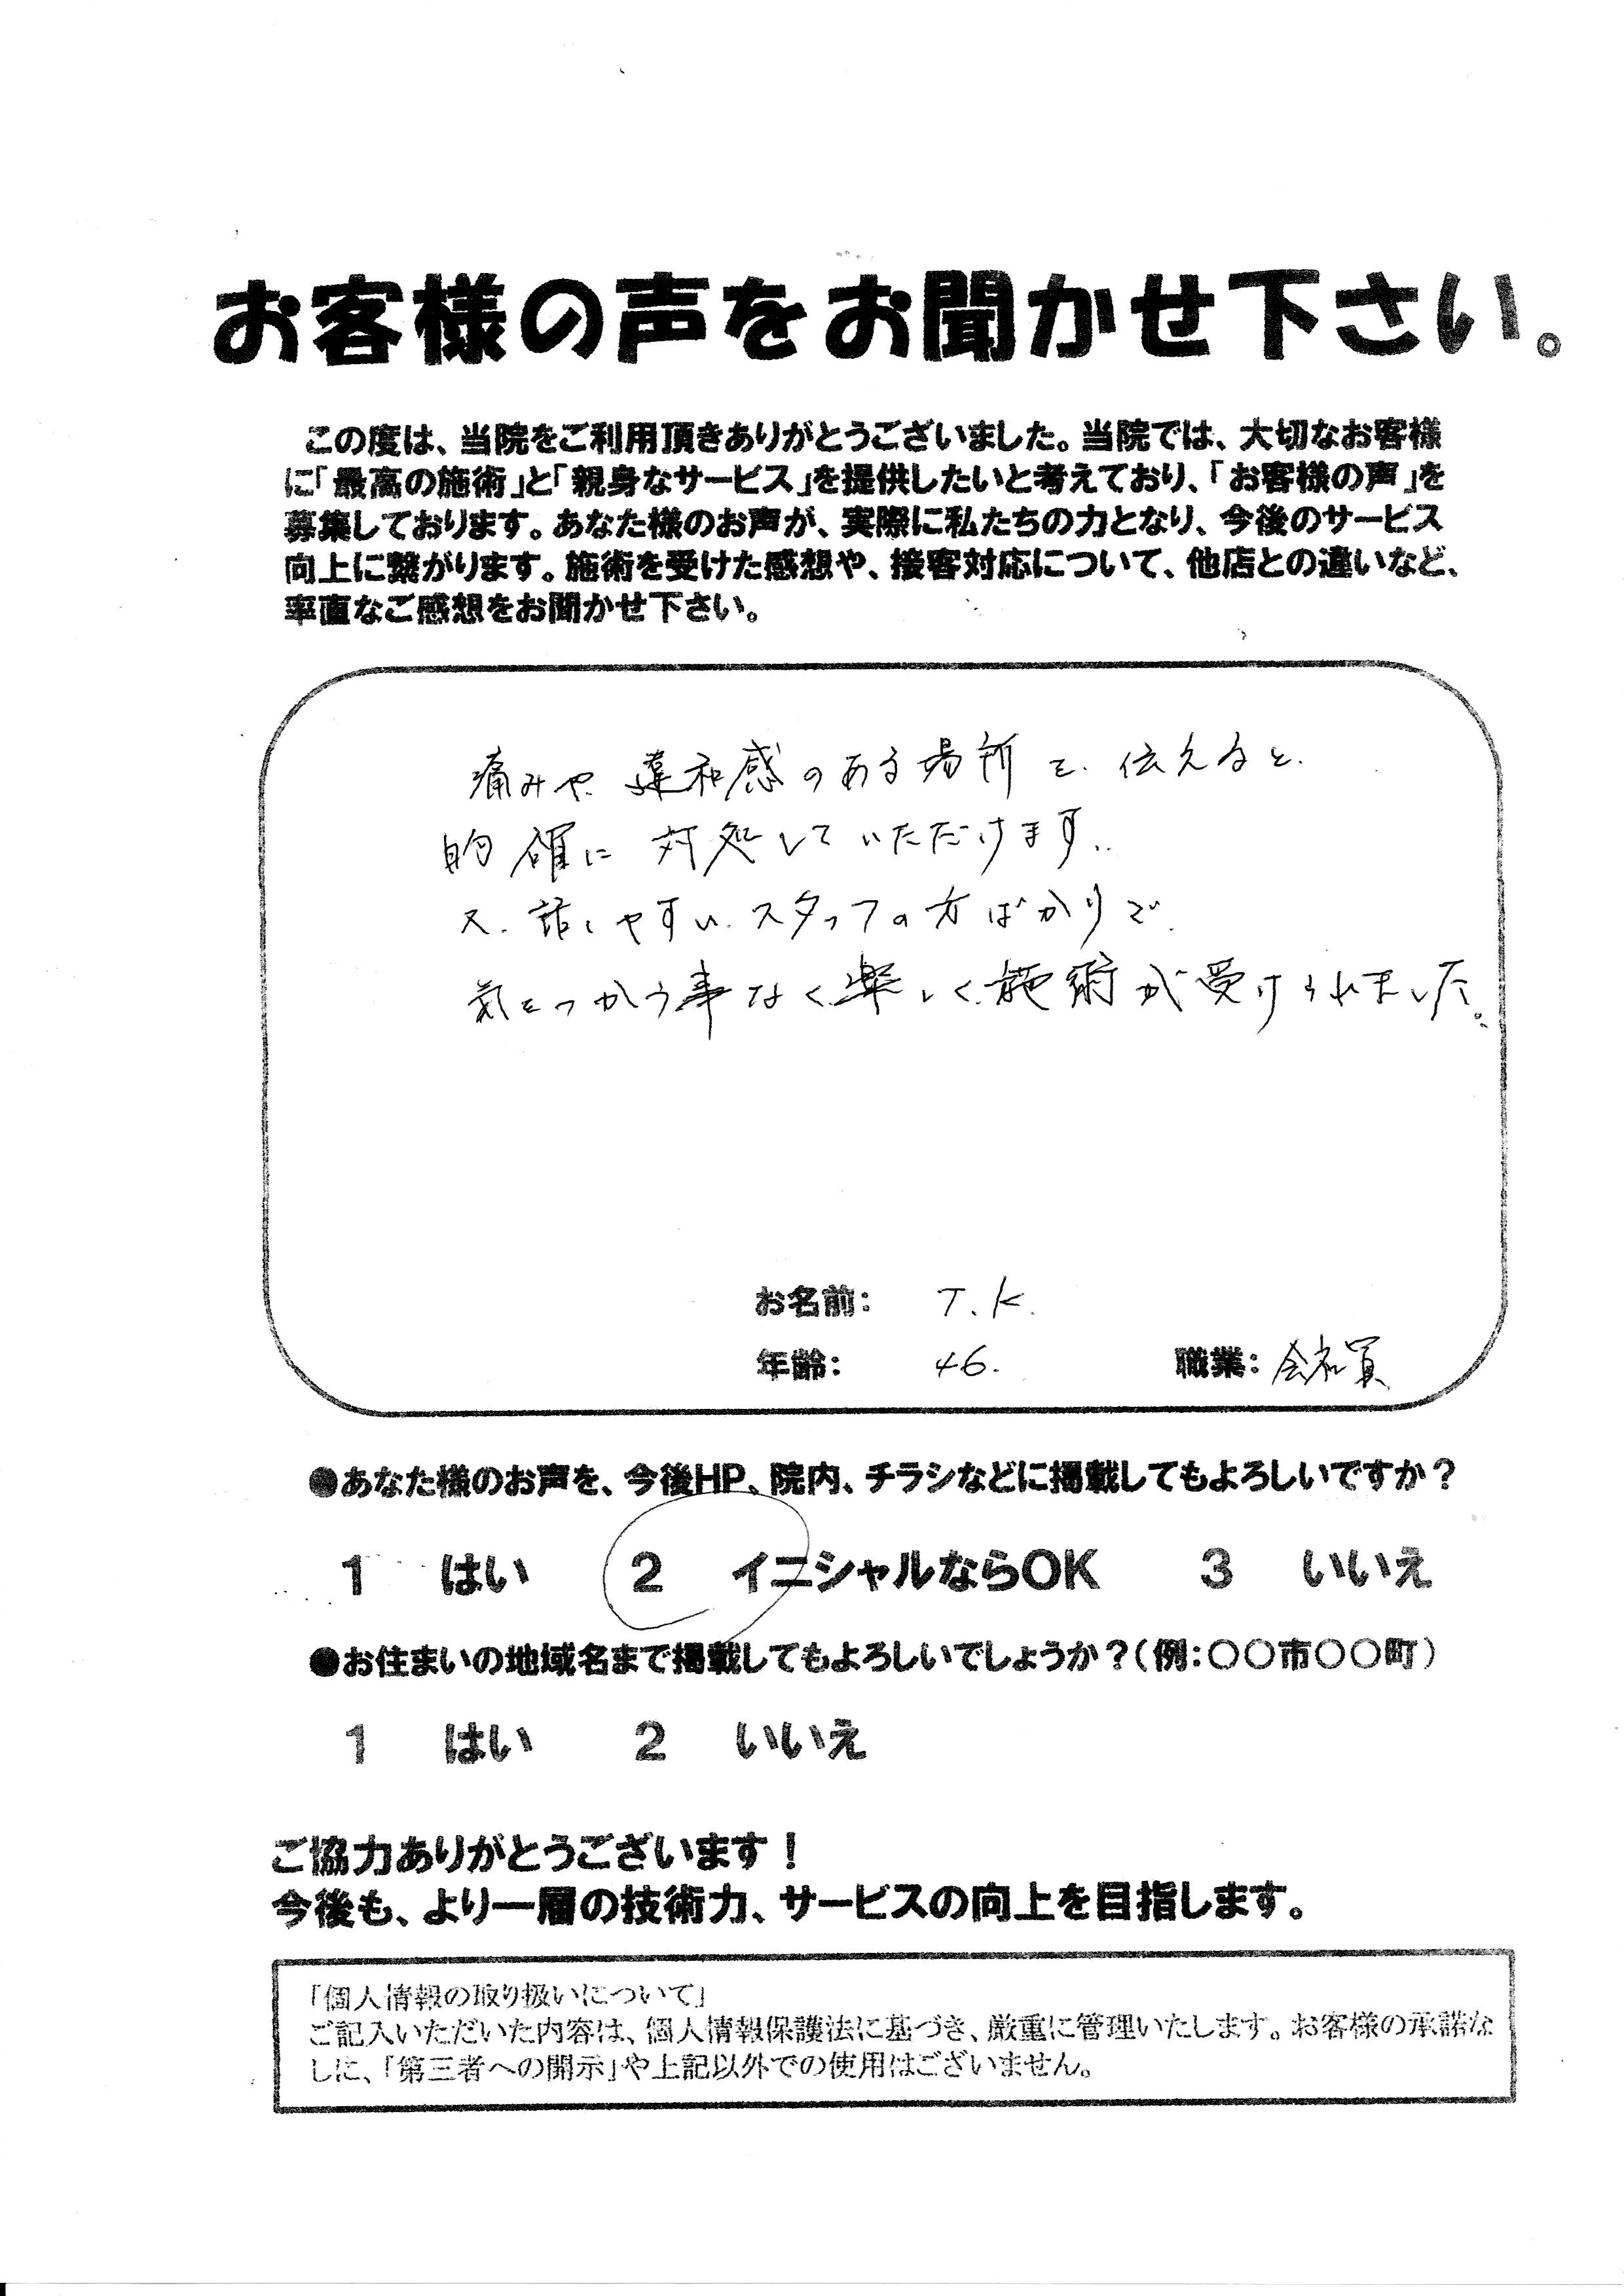 お客様の声をお聞かせ下さい。
この度は、当院をご利用頂きありがとうございました。当院では、大切なお客様
に「最高の施術」と「親身なサービス」を提供したいと考えており、「お客様の声」を
募集しております。あなた様のお声が、実際に私たちの力となり、今後のサービス
向上に繋がります。施術を受けた感想や、接客対応について、他店との違いなど、
率直なご感想をお聞かせ下さい。
痛みや、違和感のある場所を、伝えると、
的確に対処していただけます。
又、話しやすい、スタッフの方ばかりで、
気をつかう事なく、楽しく、施術が受けられました。
お名前: T.K.
年齢: 46. 職業: 会社員
●あなた様のお声を、今後HP、院内、チラシなどに掲載してもよろしいですか?
1 はい 2 イニシャルならOK 3 いいえ
●お住まいの地域名まで掲載してもよろしいでしょうか?(例:〇〇市〇〇町)
1 はい 2 いいえ
ご協力ありがとうございます!
今後も、より一層の技術力、サービスの向上を目指します。
「個人情報の取り扱いについて」
ご記入いただいた内容は、個人情報保護法に基づき、厳重に管理いたします。お客様の承諾な
しに、「第三者への開示」や上記以外での使用はございません。